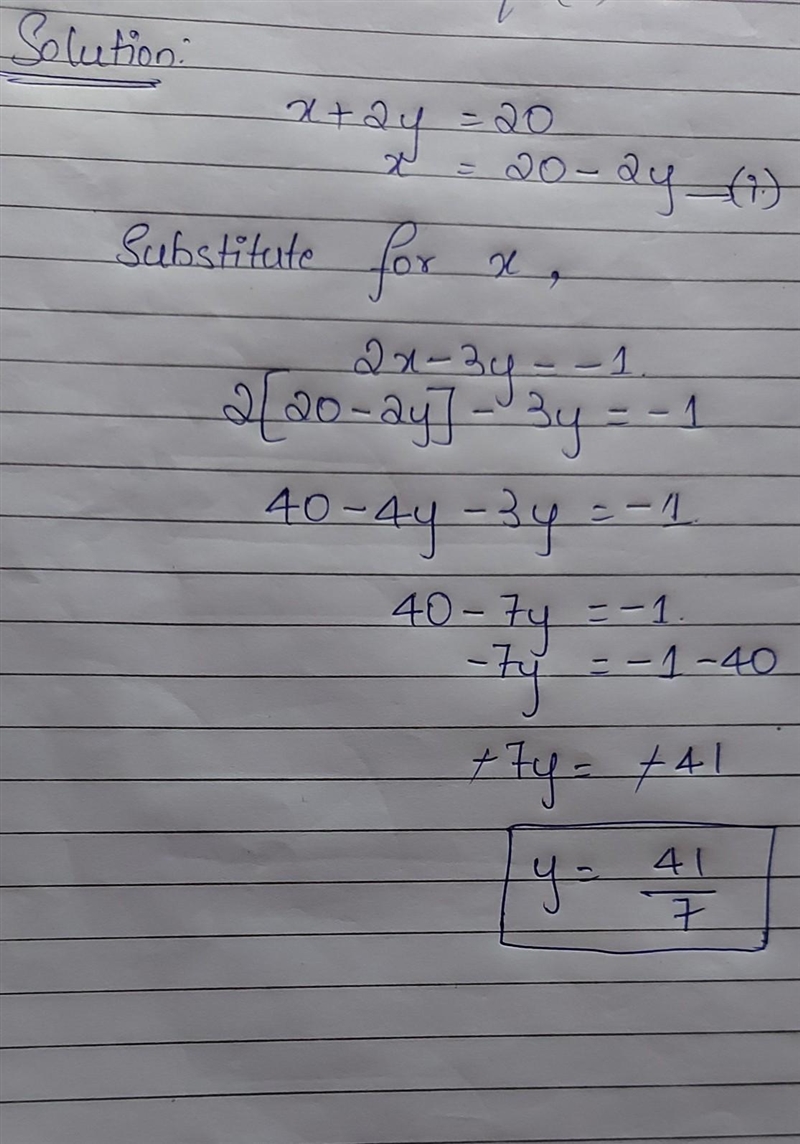 Solution:
x + 2y = 20
x = 20 - 2y —(i.)
Substitute for x,
2x - 3y = -1.
2[20 - 2y] - 3y = -1
40 - 4y - 3y = -1.
40 - 7y = -1.
-7y = -1 - 40
+7y = +41
y = 41/7